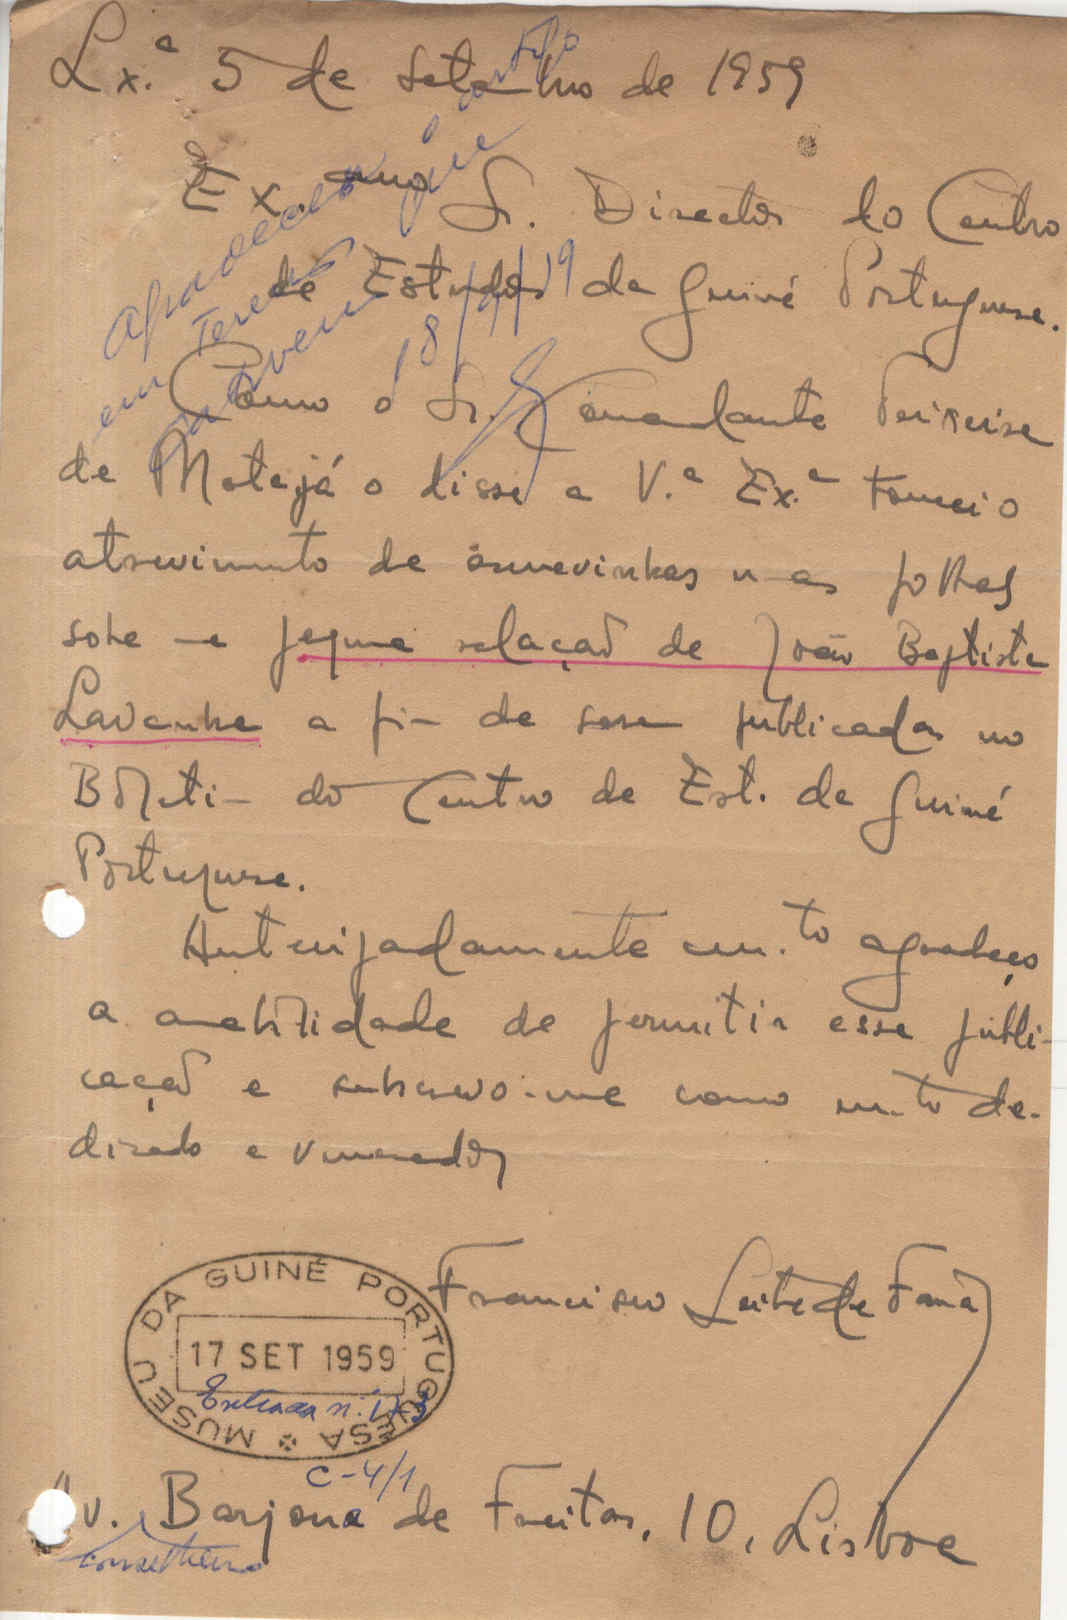 Lx.ª 5 de Setembro de 1959
Ex.mo Sr. Director do Centro
de Estudos da Guiné Portuguesa.
agradecer
em
que
artigo
18/9/59
Como o Sr. Comandante Teixeira
da Mota já o disse a V.ª Ex.ª tomei o
atrevimento de escrevinhar umas folhas
sobre a pequena relação de João Baptista
Lavanha a fim de serem publicadas no
Boletim do Centro de Est. da Guiné
Portuguesa.
Antecipadamente m.to agradeço
a amabilidade de permitir essa publi-
cação e subscrevo-me como m.to de-
dicado e venerador
Francisco Leite de Faria
MUSEU DA GUINÉ PORTUGUESA
17 SET 1959
Entrada n.º
C-4/1
Av. Barjona de Freitas, 10, Lisboa
Conselheiro